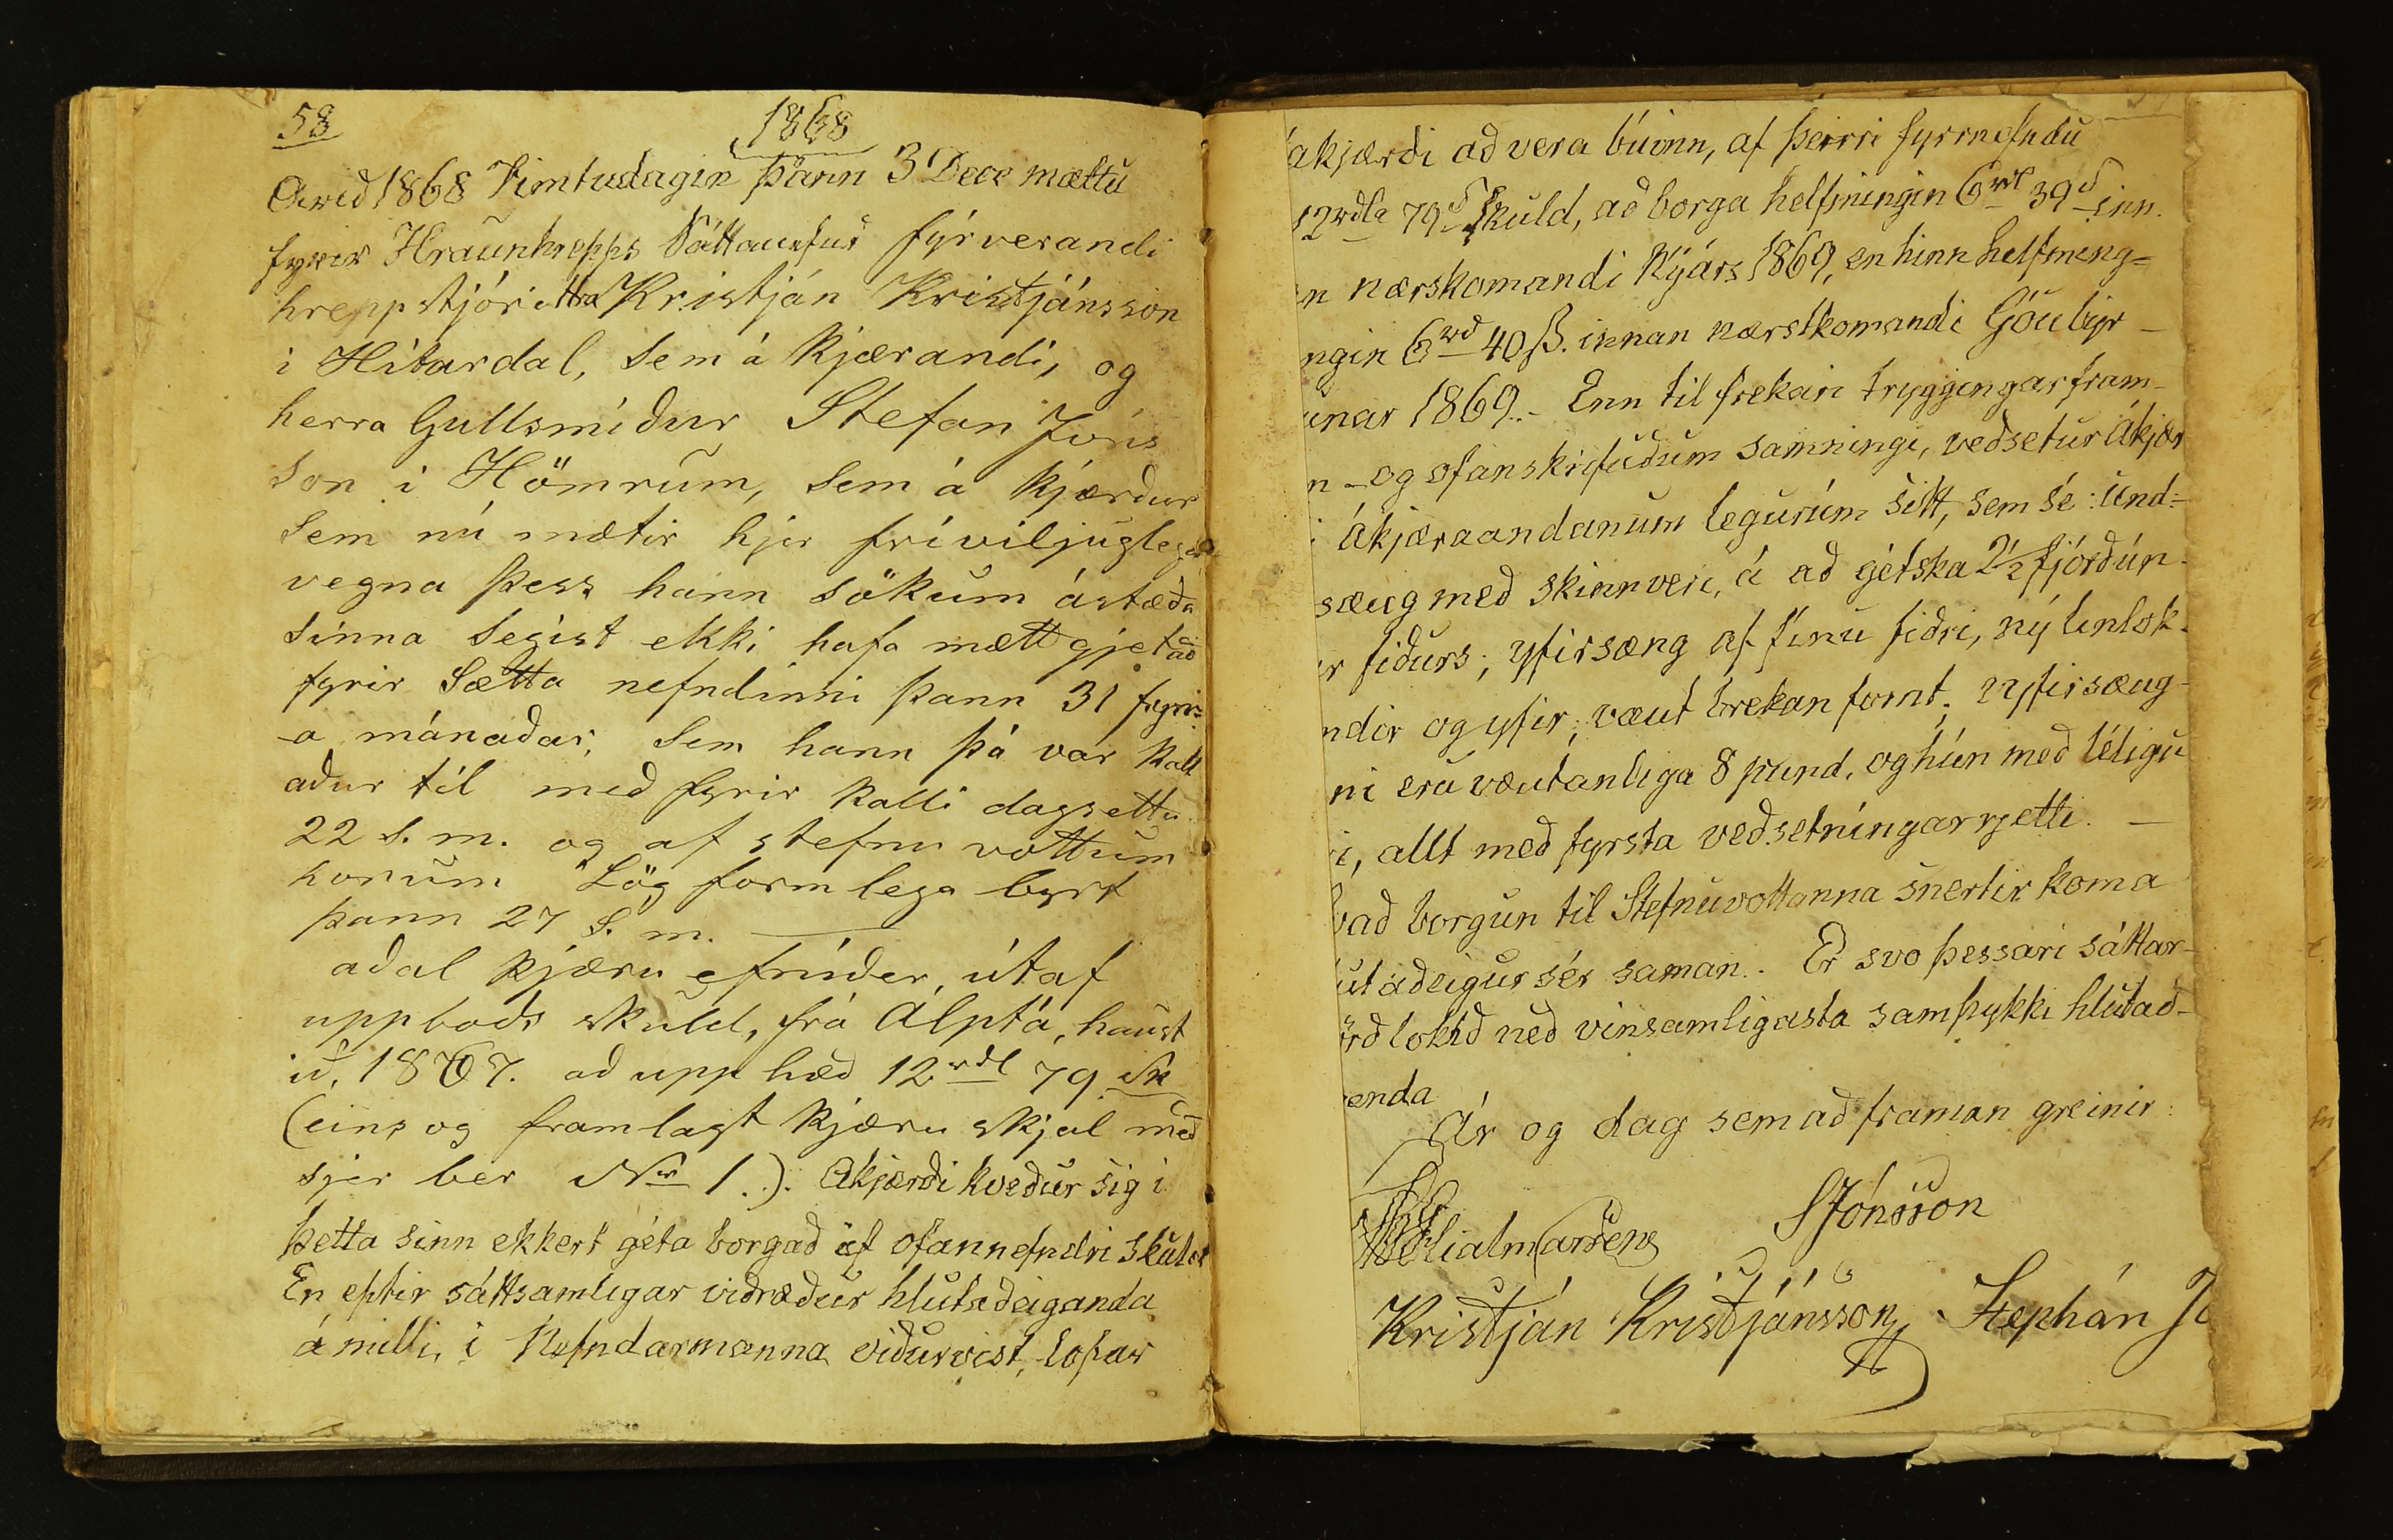 58
1868
Arið 1868 Fimtudagin þann 3 Dece mættu
fyrir Hraunhrepps Sáttanefnd fyrverandi
hreppstjóri Kristján Kristjánsson
i Hítardal, sem á kjærandi, og
herra Gullsmiður Stefan Jóns
son i Hömrum, sem á kjærður
Sem nú mætir hjer fríviljuglega
vegna þess hann sökum ástæða
sinna segist ekki hafa mætt gjetað
fyrir Sætta nefndinni þann 31 fyrr=
-a mánaðar, Sem hann þá var kall
aður til með fyrir kalli dagsettu
22 s. m. og af stefnu vottum
honum Lög formlega byrt
þann 27 S. m.
aðal kjæru efnider, útaf
uppboðs skuld, frá Álptá, haust
ið, 1867. að upp hæð 12 rdl 79 sk
(eins og framlagt kjæru skjal með
sjer ber Nr 1.). Ákjærði kveður sig í
þetta sinn ekkert géta borgað af ofannefndri skuld
En eptir sáttsamligar viðræður hlutaðeiganda
á milli, í Nefndarmanna viðurvist, lofar
ákjærði að vera búinn, af þeirri fyrrnefndu
12 rdla 79 s Skuld, að borga helfningin 6 rdl 39 s inn
n nærskomandi Nýárs 1869, en hinn helfning=
ngin 6 rd 40 ß. innan nærstkomandi Góubyr-
unar 1869.- Enn til frekari tryggingar fram-
n - og ofanskrifuðum samningi, veðsetur ákjær
i Ákjæraandanum legurúm sitt, sem sé: Und=
sæng með skinnveri, á að gétska 2½ fjórðún-
r fiðurs; yfirsæng af fínu fiðri, ný línlök.
ndir og yfir; væut brekan fornt; í yfirsæng-
ni eru væutanliga 8 pund, og hún með léligu
i, allt með fyrsta veðsetníngarrjetti. -
vað borgun til Stefnuvottanna snertir koma
lutaðeigur sér saman. Er svo þessari sáttar-
örð lokið með vinsamligasta samþykki hlutað-
enda
Ár og dag sem að framan greinir:
Hialmarsen SJónsson
Kristján Kristjánsson Stephán J